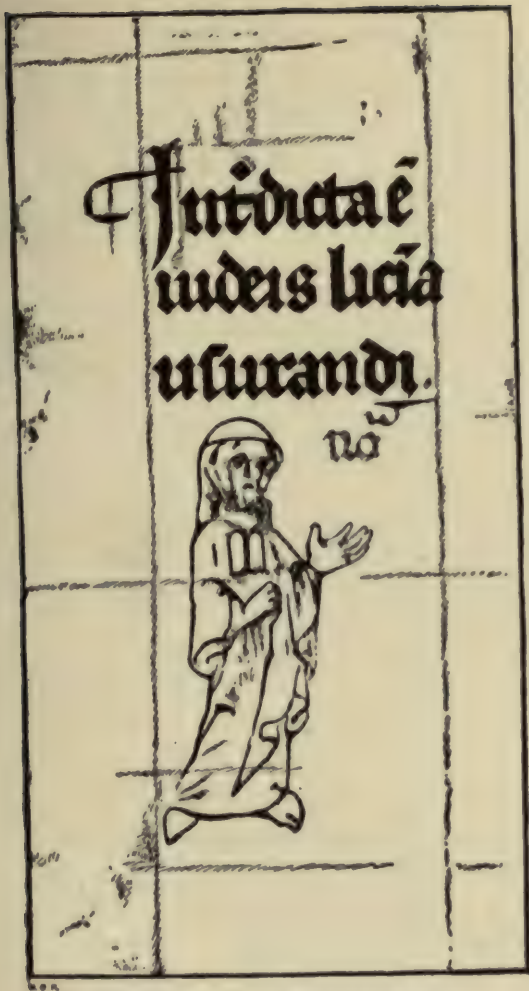 Int̉dicta ē
iudeis licīa
usurandi.
no